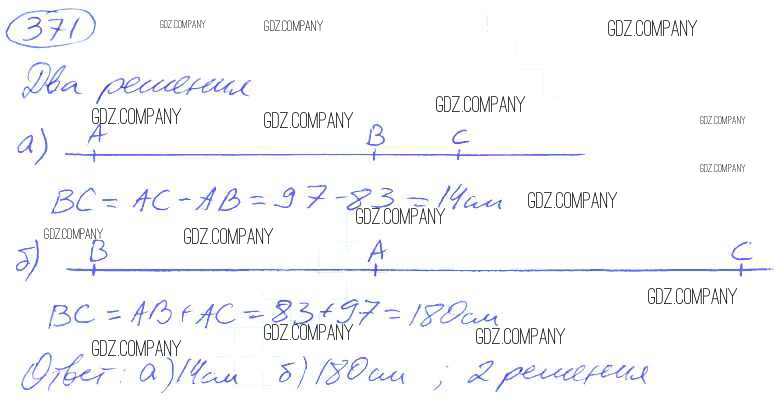 371 GDZ.COMPANY GDZ.COMPANY GDZ.COMPANY
Два решения
GDZ.COMPANY GDZ.COMPANY GDZ.COMPANY GDZ.COMPANY
а) A B C
GDZ.COMPANY
BC = AC - AB = 97 - 83 = 14 см GDZ.COMPANY
GDZ.COMPANY
GDZ.COMPANY GDZ.COMPANY
б) B A C
GDZ.COMPANY
BC = AB + AC = 83 + 97 = 180 см
GDZ.COMPANY GDZ.COMPANY
GDZ.COMPANY
Ответ: а) 14 см б) 180 см ; 2 решения